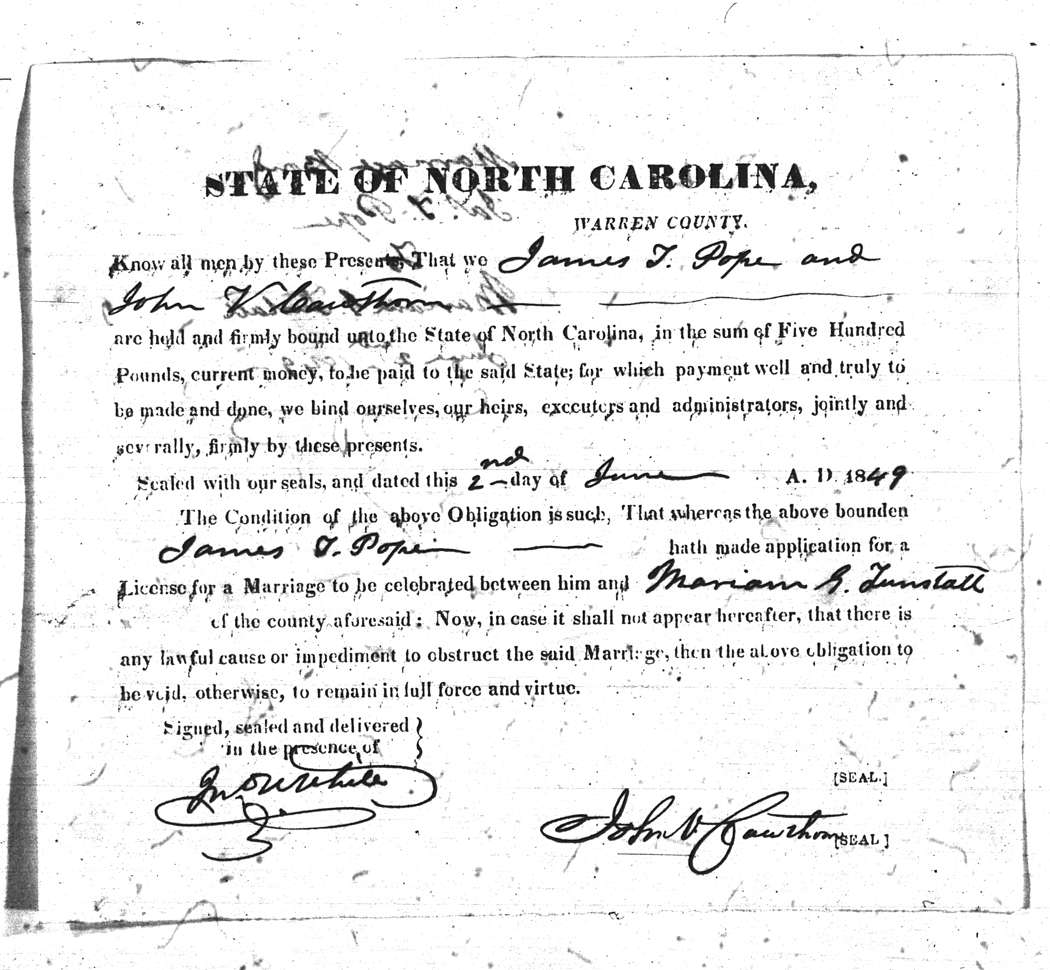 STATE OF NORTH CAROLINA,
WARREN COUNTY.
Know all men by these Presents, That we James T. Pope and
John V. Cawthorn
are held and firmly bound unto the State of North Carolina, in the sum of Five Hundred
Pounds, current money, to be paid to the said State; for which payment well and truly to
be made and done, we bind ourselves, our heirs, executers and administrators, jointly and
severally, firmly by these presents.
Sealed with our seals, and dated this 2nd day of June A. D. 1849
The Condition of the above Obligation is such, That whereas the above bounden
James T. Pope hath made application for a
License for a Marriage to be celebrated between him and Mariam G. Tunstall
of the county aforesaid: Now, in case it shall not appear hereafter, that there is
any lawful cause or impediment to obstruct the said Marriage, then the above obligation to
be void, otherwise, to remain in full force and virtue.
Signed, sealed and delivered
in the presence of
[SEAL.]
Jno W White
John V. Cawthorn [SEAL]